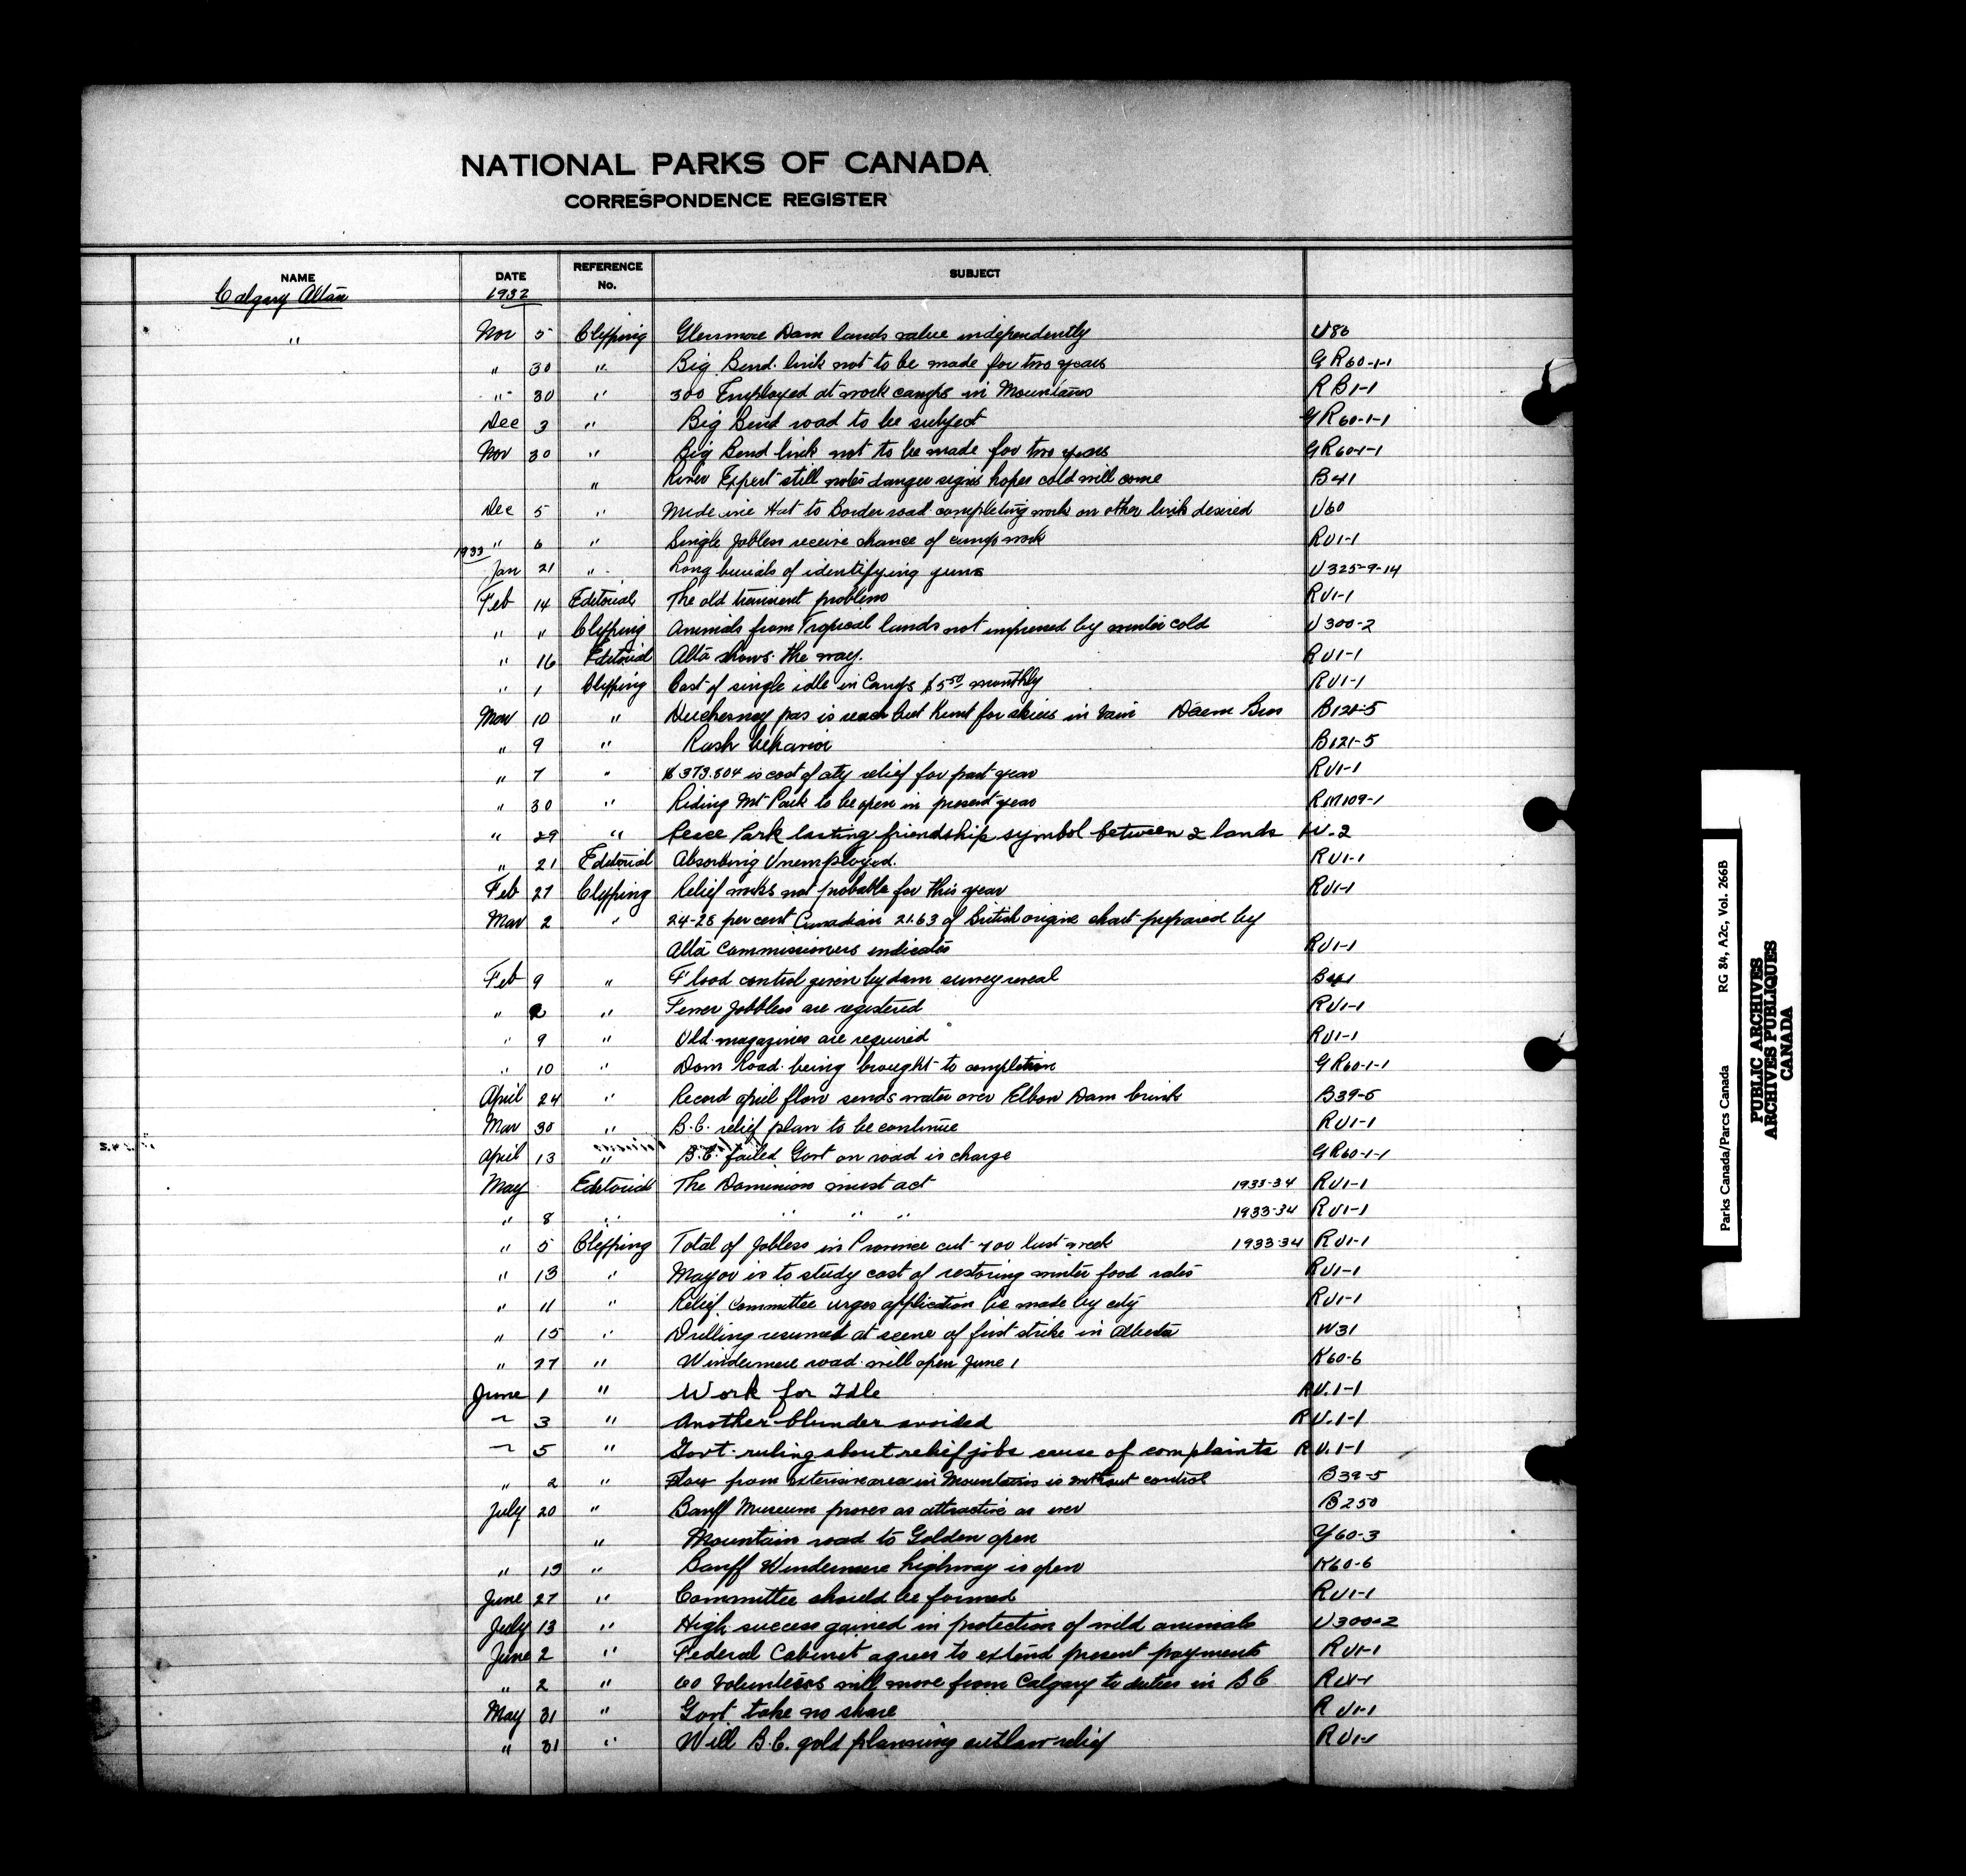 NATIONAL PARKS OF CANADA
CORRESPONDENCE REGISTER
NAME DATE REFERENCE No. SUBJECT
Calgary 1932
" Nov 5 Clipping Glenmore Dam lands value independently U80
" 30 " Big Bend link not to be made for two years GR60-1-1
" 30 " 300 Employed at work camps in Mountains RB1-1
Dec 3 " Big Bend road to be subject GR60-1-1
Nov 30 " Big Bend link not to be made for two years GR60-1-1
" River Expert still notes danger signs hopes cold will come B41
Dec 5 " Medicine Hat to Border road completing work on other link desired U60
" 6 " Single jobless receive chance of camp work RU1-1
1933
Jan 21 " Long burials of identifying guns U325-9-14
Feb 14 Editorial The old transient problem RU1-1
" " Clipping Animals from Tropical lands not impressed by winter cold U300-2
" 16 Editorial Alta shows the way. RU1-1
" 1 Clipping Cost of single idle in Camps $5.50 monthly RU1-1
Mar 10 " Duchesnay pas is reach but Hunt for skiers in vain Daem Bros B121-5
" 9 " Rash behavior B121-5
" 7 " $373.804 is cost of city relief for past year RU1-1
" 30 " Riding Mt Park to be open in present year RM109-1
" 29 " Peace Park lasting friendship symbol between 2 lands W.2
" 21 Editorial Absorbing Unemployed. RU1-1
Feb 27 Clipping Relief works not probable for this year RU1-1
Mar 2 " 24-28 per cent Canadian 21.63 of British origine chart prepared by
Alta Commissioners indicates RU1-1
Feb 9 " Flood control given by dam survey reveal B41
" 2 " Fewer jobbless are registered RU1-1
" 9 " Old magazines are required RU1-1
" 10 " Dom Road being brought to completion GR60-1-1
April 24 " Record april flow sends water over Elbow Dam brink B39-5
Mar 30 " B.C. relief plan to be continue RU1-1
April 13 " B.C. failed Govt on road is charge GR60-1-1
May Editorial The Dominion must act 1933-34 RU1-1
" 8 " " " " 1933-34 RU1-1
" 5 Clipping Total of jobless in Province cut 400 last week 1933-34 RU1-1
" 13 " Mayor is to study cost of restoring winter food rates RU1-1
" 11 " Relief Committee urges application be made by city RU1-1
" 15 " Drilling resumed at scene of first strike in Alberta W31
" 27 " Windermere road will open June 1 K60-6
June 1 " Work for Idle RU.1-1
~ 3 " Another blunder avoided RU.1-1
~ 5 " Govt ruling about relief jobs cause of complaints RU.1-1
" 2 " Flow from extensive area in Mountains is without control B39-5
July 20 " Banff Museum proves as attractive as ever B250
" Mountain road to Golden open Y60-3
" 19 " Banff Windermere highway is open K60-6
June 27 " Committee should be formed RU1-1
July 13 " High success gained in protection of wild animals U300-2
June 2 " Federal Cabinet agrees to extend present payments RU1-1
" 2 " 60 Volunteers will move from Calgary to duties in B C RU1-1
May 31 " Govt take no share RU1-1
" 31 " Will B.C. gold planning outlaw relief RU1-1
Parks Canada/Parcs Canada RG 84, A2c, Vol. 266B
PUBLIC ARCHIVES
ARCHIVES PUBLIQUES
CANADA